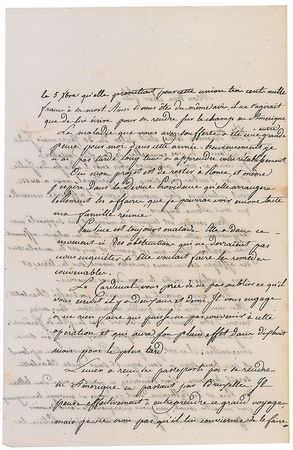 le 5 Xbre qu'elle promettait pour cette union trois cent mille
francs à sa mort. Aussi êtes du même avis, il ne s'agirait
que de lui écrire pour se rendre sur le champ en Amérique
La maladie que vous avez soufferte a été une grande
peine pour moi dans cette année. heureusement je
n'ai pas tardé long tems à apprendre votre rétablissement
mon projet est de rester à Rome, et même
j'espère dans la Divine Providence qu'elle arrangera
tellement les affaires que je pourrai voir encore toute
ma famille réunie.
Pauline est toujours malade. Elle a dans ce
moment-ci des obstructions qui ne devraient pas
vous inquiéter, si elle voulait faire le remède
convenable.
Le Cardinal vous prie de ne pas oublier ce qu'il
vous
à ne rien faire que puisse ne pas convenir à cette
opération et qui aura son plein effet dans dix huit
mois pour le plus tard.
Lucien a reçu des passeports pour se rendre
en Amérique en passant par Bruxelles. Il
pense effectivement à entreprendre ce grand voyage
mais je ne crois pas qu'il lui convienne de le faire